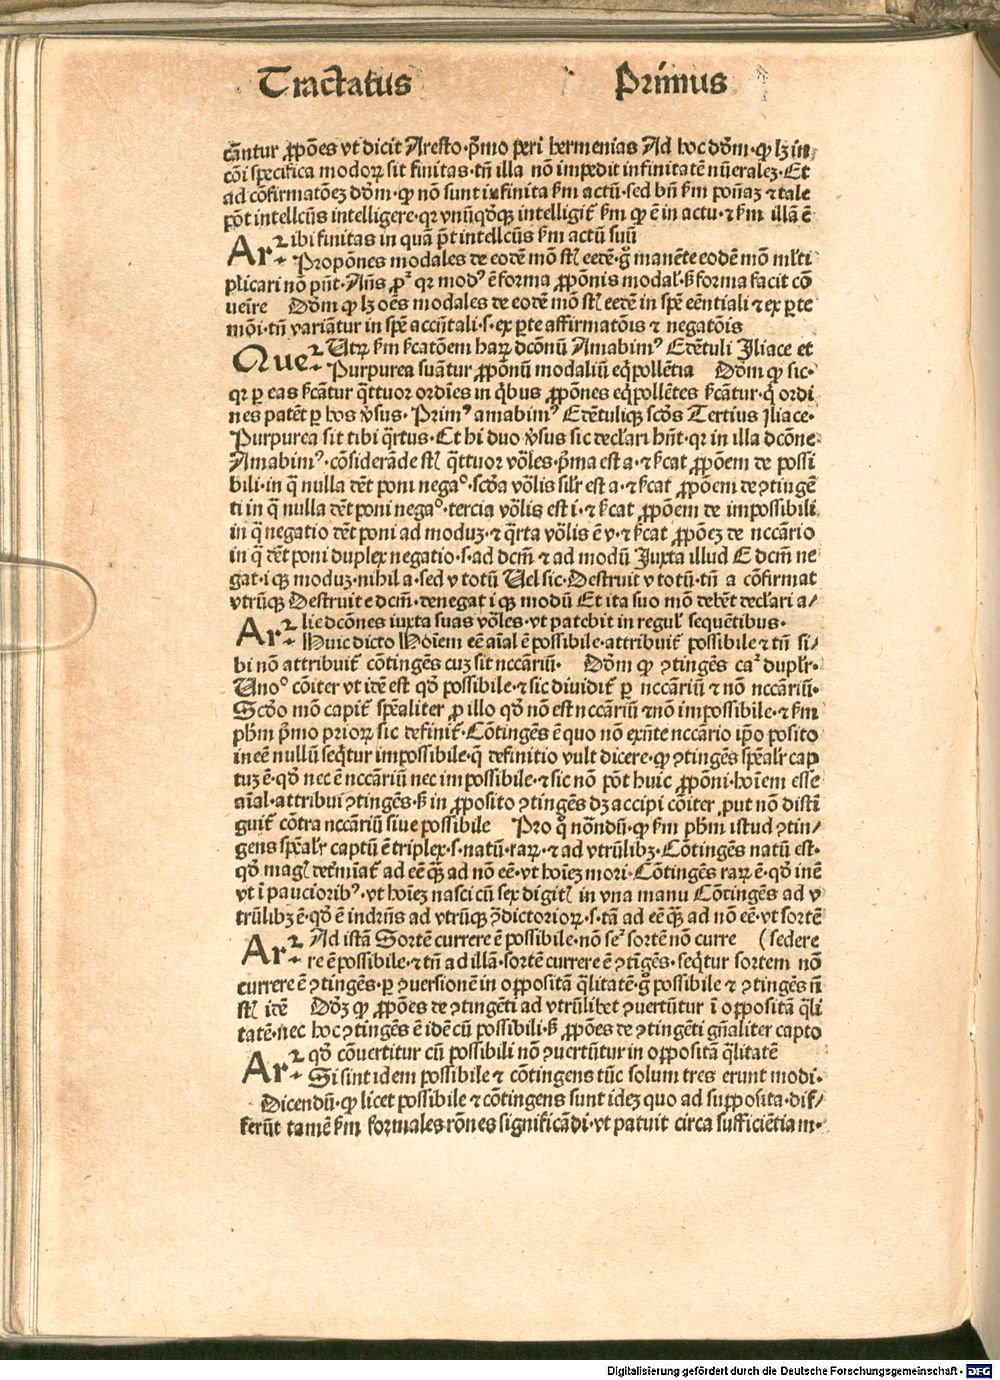 Tractatus Primus
cantur ꝓpōes vt dicit Aresto·p̄mo peri hermenias Ad hoc dōm·ꝙ lꝫ in
cōi specifica modoꝝ sit finitas·tn̄ illa nō impedit infinitatē nūeralez·Et
ad cōfirmatōez dōm·ꝙ nō sunt infinita ẜm actū·sed bn̄ ẜm potn̄az ⁊ tale
pōt intellcūs intelligere·qr vnūqȯqꝫ intelligit̄ ẜm ꝙ ē in actu·⁊ ẜm illā ē
Arꝛ· ibi finitas in quā pōt intellcūs ẜm actū suū
Propōnes modales de eodē mō st̄ eedē·gͦ manēte eodē mō ml̄ti
plicari nō pn̄t·An̄s pꝫ qr modꝰ ē forma ꝓpōnis modal̄·ẜ forma facit cō
ueīre Dōm ꝙ lꝫ oēs modales de eodē mō st̄ eedē in spē eēntiali ⁊ ex ꝑte
mōi·tn̄ variātur in spē accn̄tali·s·ex ꝑte affirmatōis ⁊ negatōis
Queꝛ· Utꝝ ẜm ẜcatōem haꝝ dcōnū Amabimꝰ Edētuli Iliace et
Purpurea suātur ꝓpōnū modaliū eq̄pollētia Dōm ꝙ sic·
qr ꝑ eas ẜcātur q̄ttuor ordīes in q̄bus ꝓpōnes eq̄pollētes ẜcātur·q̄ ordi
nes patēt ꝑ hos v̄sus·Primꝰ amabimꝰ Edētuliqꝫ scd̄s Tertius iliace·
Purpurea sit tibi q̄rtus·Et hi duo v̄sus sic declari hn̄t·qr in illa dcōne
Amabimꝰ·cōsiderāde st̄ q̄ttuor vōles·p̄ma est a·⁊ ẜcat ꝓpōem de possi
bili·in q̄ nulla dēt poni negaͦ·scd̄a vōlis sil̄r est a·⁊ ẜcat ꝓpōem de ꝯtingē
ti in q̄ nulla dēt poni negaͦ·tercia vōlis est i·⁊ ẜcat ꝓpōem de impossibili
in q̄ negatio dēt poni ad moduz·⁊ q̄rta vōlis ē v·⁊ ẜcat ꝓpōez de nccārio
in q̄ dēt poni duplex negatio·s·ad dcm̄ ⁊ ad modū Iuxta illud E dcm̄ ne
gat·i qꝫ moduz·nihil a·sed v totū Uel sic·Destruit v totū·tn̄ a cōfirmat
vtrūqꝫ Destruit e dcm̄·denegat i qꝫ modū Et ita suo mō debēt declari a/
Arꝛ· lie dcōnes iuxta suas vōles·vt patebit in regul̄ sequētibus·
Huic dicto Hoīem eē aīal ē possibile·attribuit̄ possibile ⁊ tn̄ si/
bi nō attribuit̄ cōtingēs cuz sit nccāriū· Dōm ꝙ ꝯtingēs caꝛ dupl̄r·
Unoͦ cōiter vt idē est qȯ possibile·⁊ sic diuidit̄ ꝑ nccāriū ⁊ nō nccāriū·
Scd̄o mō capit̄ spēaliter ꝓ illo qȯ nō est nccāriū ⁊ nō impossibile·⁊ ẜm
ph̄m p̄mo prioꝝ sic definit̄·Cōtingēs ē quo nō exn̄te nccārio ip̄o posito
in eē nullū seq̄tur impossibile·q̄ definitio vult dicere·ꝙ ꝯtingēs spēal̄r cap
tuz ē·qȯ nec ē nccāriū nec impossibile·⁊ sic nō pōt huic ꝓpōni·hoīem esse
aīal·attribui ꝯtingēs·ẜ in ꝓposito ꝯtingēs dꝫ accipi cōiter ꝓut nō distī
guit̄ cōtra nccāriū siue possibile Pro qͦ nōndū·ꝙ ẜm ph̄m istud ꝯtin/
gens spēal̄r captū ē triplex·s·natū·raꝝ·⁊ ad vtrūlibꝫ·Cōtingēs natū est·
qȯ magꝭ det̄miāt̄ ad eē qꝫ̄ ad nō eē·vt hoīez mori·Cōtingēs raꝝ ē·qȯ inē
vt ī paucioribꝰ·vt hoīez nasci cū sex digitꝭ in vna manu Cōtingēs ad v
trūlibꝫ ē·qȯ ē indrn̄s ad vtrūqꝫ ꝯ̄dictorioꝝ·s·tā ad eē qꝫ̄ ad nō eē·vt sortē
Arꝛ· Ad istā Sortē currere ē possibile·nō seꝛ sortē nō curre (sedere
re ē possibile·⁊ tn̄ ad illā·sortē currere ē ꝯtīgēs·seq̄tur sortem nō
currere ē ꝯtingēs·ꝑ ꝯuersionē in oppositā q̄litatē·gͦ possibile ⁊ ꝯtingēs n̄
st̄ idē Dōꝫ ꝙ ꝓpōes de ꝯtingēti ad vtrūlibet ꝯuertūtur ī oppositā q̄li
tatē·nec hoc ꝯtingēs ē idē cū possibili·ẜ ꝓpōes de ꝯtingēti gn̄aliter capto
Arꝛ· qȯ cōuertitur cū possibili nō ꝯuertūtur in oppositā q̄litatē
Si sint idem possibile ⁊ cōtingens tūc solum tres erunt modi·
Dicendū·ꝙ licet possibile ⁊ cōtingens sunt idez quo ad supposita·dif/
ferūt tamē ẜm formales rōnes significādi·vt patuit circa sufficiētiam·
Digitalisierung gefördert durch die Deutsche Forschungsgemeinschaft - DFG